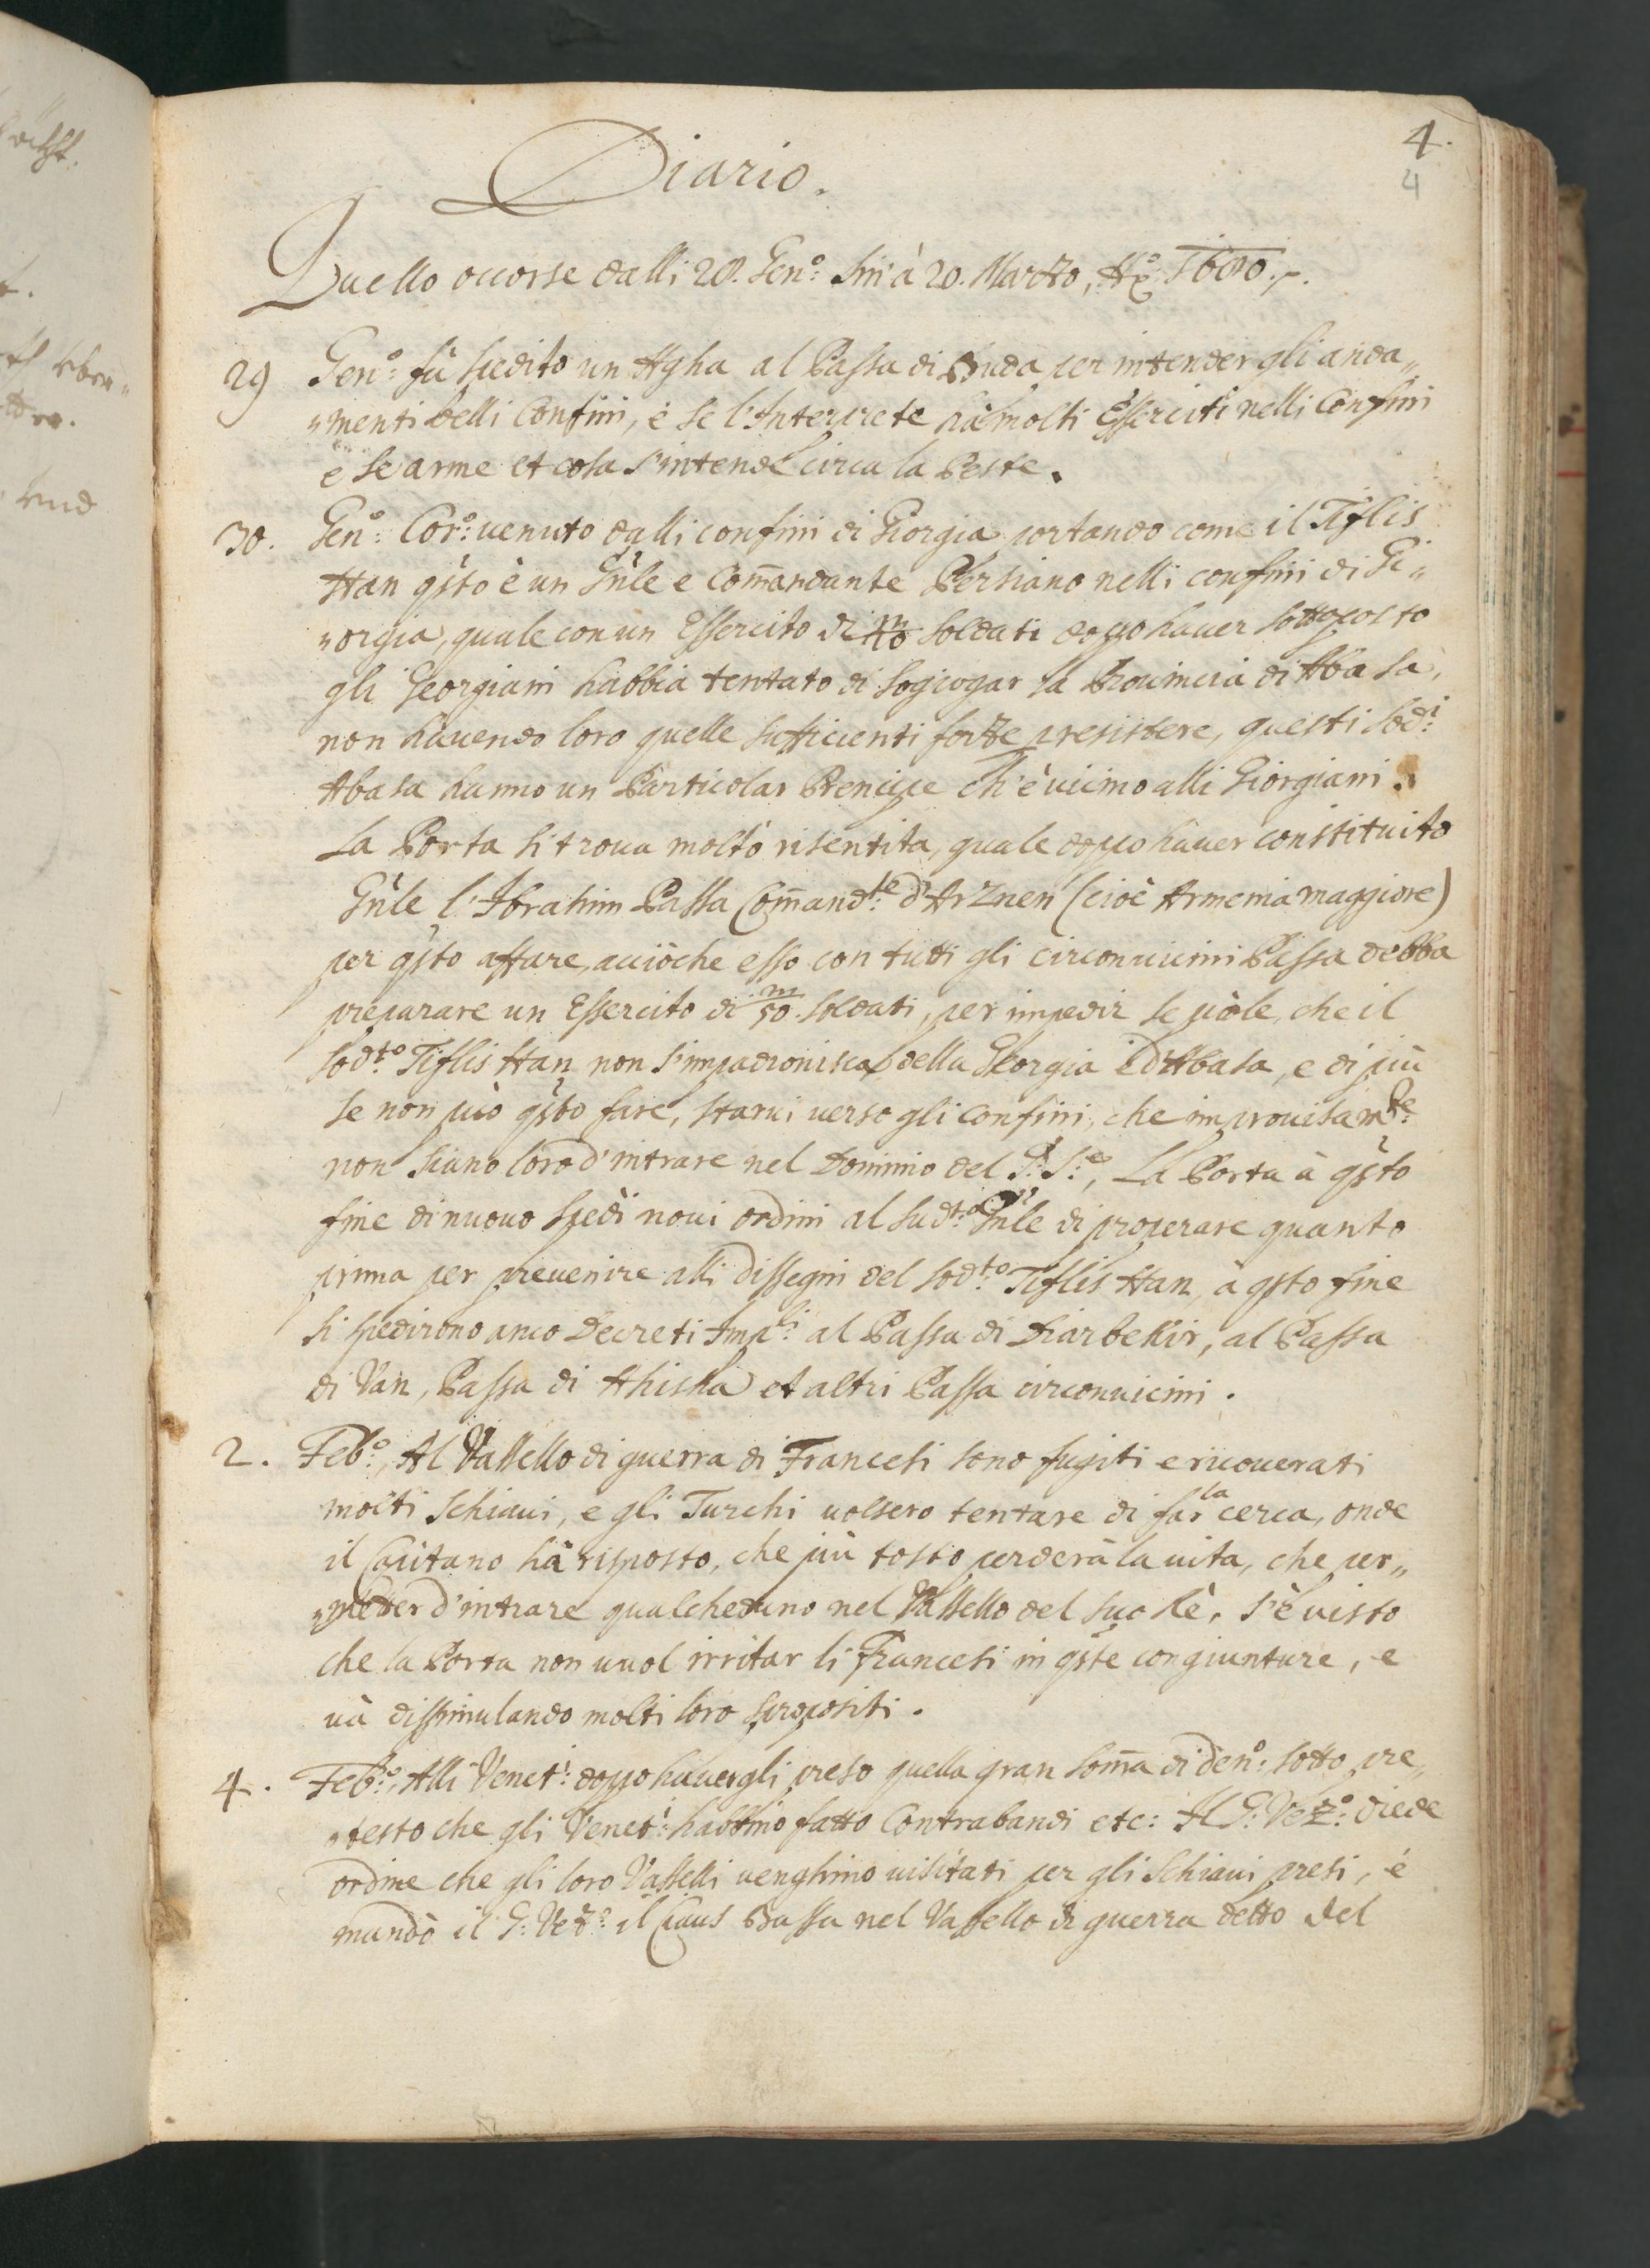 4.
4
Diario.
Quello occorse dalli 28. Gen:º sin'à 20. Marzo, Aº: 1680.
29 Gen:º fù spedito un Agha al Passa di Buda per intender gli anda„
„menti delli Confini, è se l'Interprete hà molti Esserciti nelli Confini
è se arme et cosa s'intende circa la Peste.
30. Gen:º Cor:º uenuto dalli confini di Giorgia portando come il Tiflis
Han qsto è un Gnle e Com̄andante Persiano nelli confini di Gi„
„orgia, quale con un Essercito di m/40 soldati doppo hauer sottoposto
gli Georgiani habbia tentato di sogiogar la Prouincia di Abasa,
non hauendo loro quelle sufficienti forze p resistere, questi sod:i
Abasa hanno un Particolar Prencipe ch'è uicino alli Giorgiani.
La Porta si troua molto risentita, quale doppo hauer constituito
Gnle l'Ibrahim Passa Com̄and:te d'Arznen (cioè Armenia maggiore)
per qsto affare, acciòche esso con tutti gli circonuicini Passa debba
preparare un Essercito di m/50. soldati, per impedir se pòle, che il
sod:to Tiflis Han non s'impadronisca della Georgia è d'Abasa, e di più
se non può qsto fare, starui uerso gli confini, che improuisam:te
non siano loro d'intrare nel Dominio del G: S:e, La Porta à qsto
fine di nuouo spedì noui ordini al sud:to Gnle di properare quanto
prima per preuenire alli dissegni del sod:to Tiflis Han, à qsto fine
si spedirono anco Decreti Imp:li al Passa di Diarbekir, al Passa
di Van, Passa di Ahiska et altri Passa circonuicini.
2. Feb:º, Al Vassello di guerra di Francesi sono fugiti e ricouerati
molti Schiaui, e gli Turchi uolsero tentare di far la cerca, onde
il Capitano hà risposto, che più tosto perderà la uita, che per„
„metter d'intrare qualcheduno nel Vassello del suo Rè, s'è uisto
che la Porta non uuol irritar li Francesi in qste congiunture, e
uà dissimulando molti loro spropositi.
4. Feb:º, Alli Venet:i doppo hauergli preso quella gran som̄a di den:º sotto pre„
„testo che gli Venet:i habbino fatto Contrabandi etc: Il G: Vez:º diede
ordine che gli loro Vasselli venghino uisitati per gli Schiaui presi, è
mandò il G: Vez:º il Ciaus Bassa nel Vassello di guerra detto del